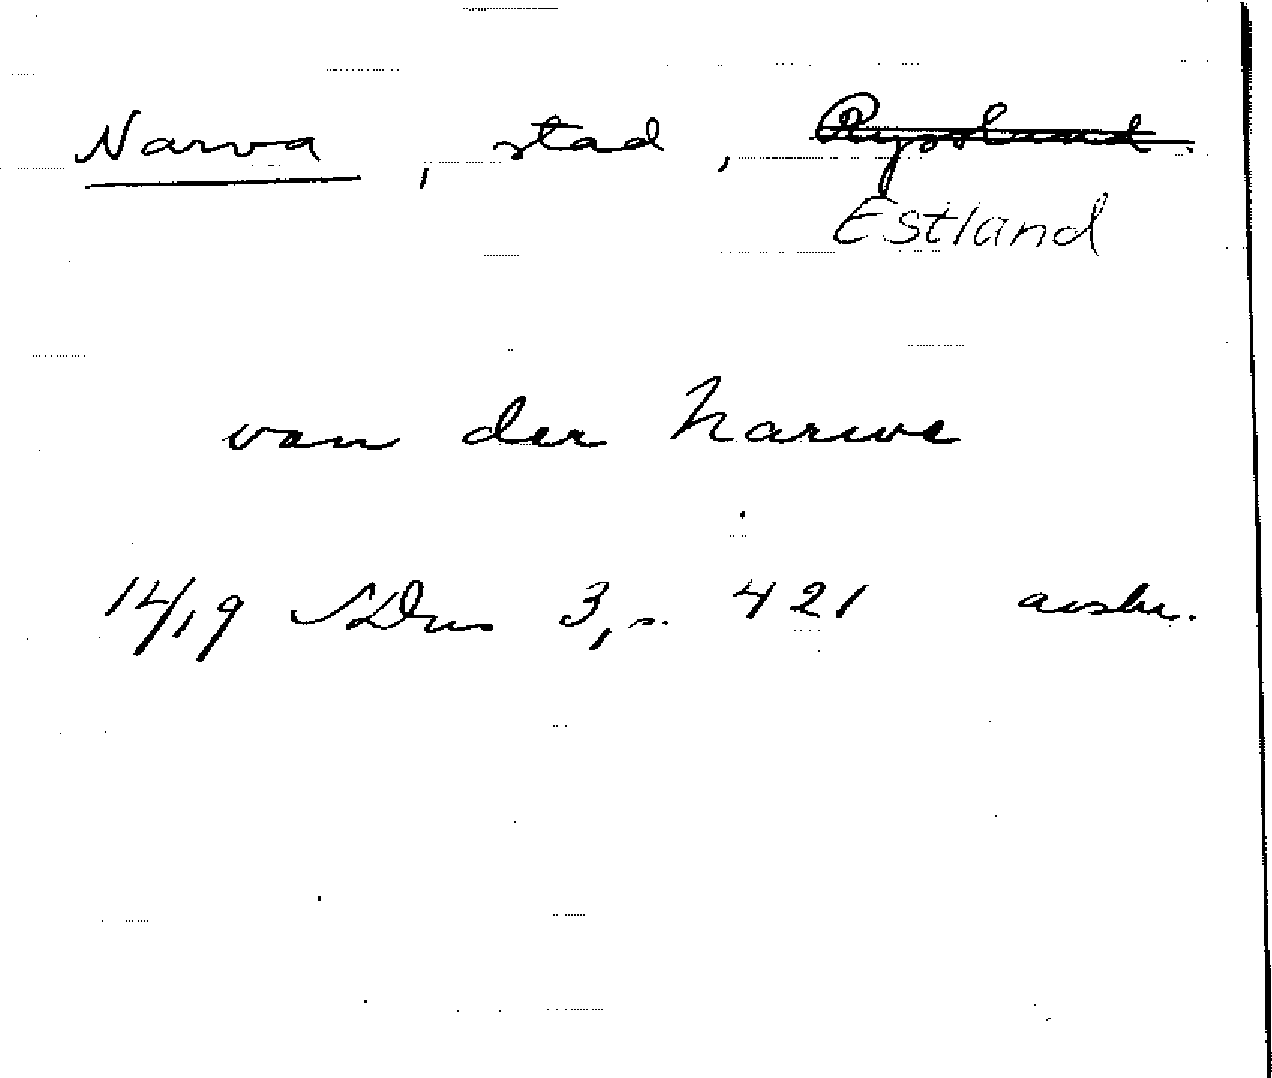 Narva, stad, Ryssland.
Estland
van der Narwe
14/19 SDns 3, s. 421 avskr.